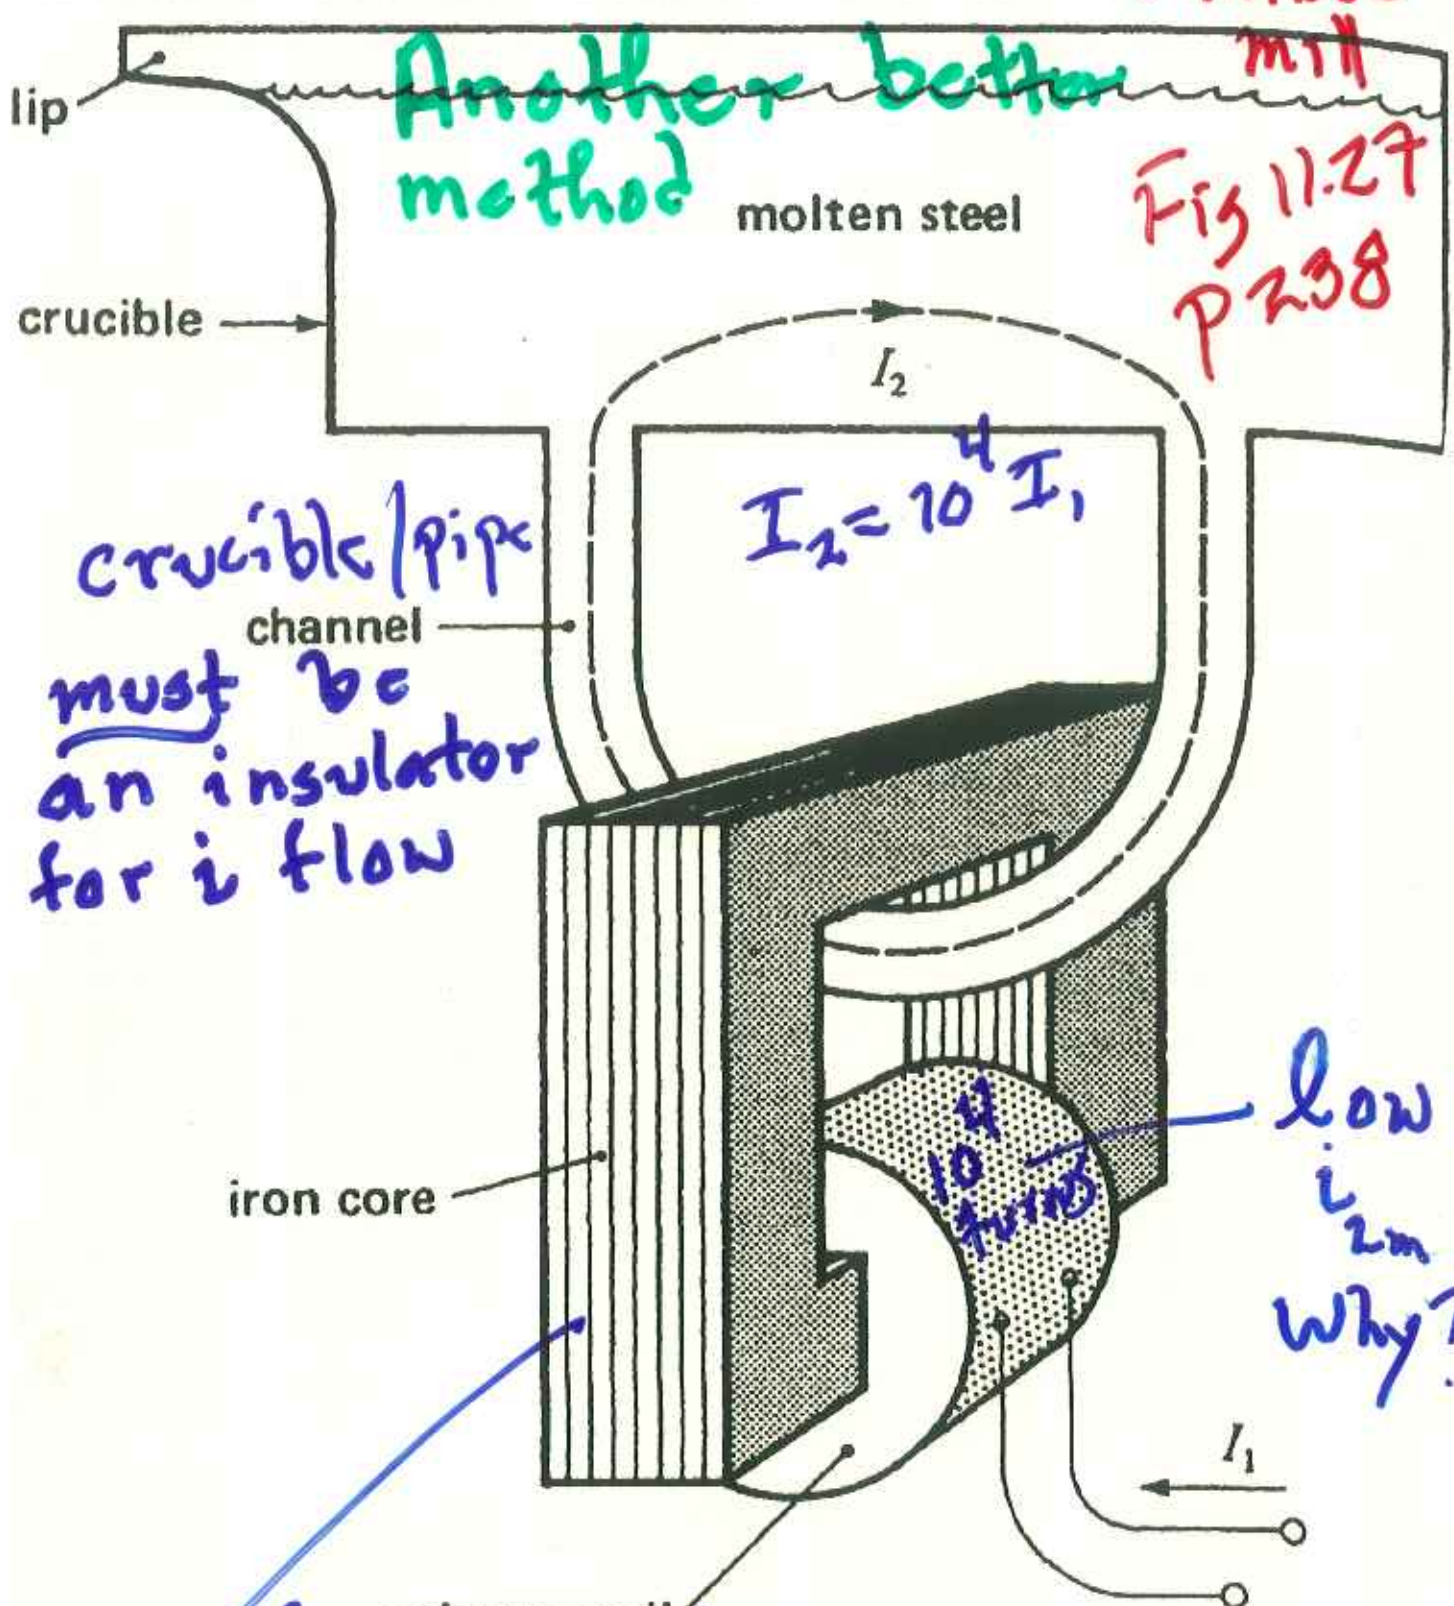 mill
lip
Another better
method
molten steel
Fig 11.27
p 238
crucible
I₂
I₂ = 10⁴ I₁
crucible/pipe
channel
must be
an insulator
for i flow
iron core
10⁴
turns
low
i₂ₘ
Why?
I₁